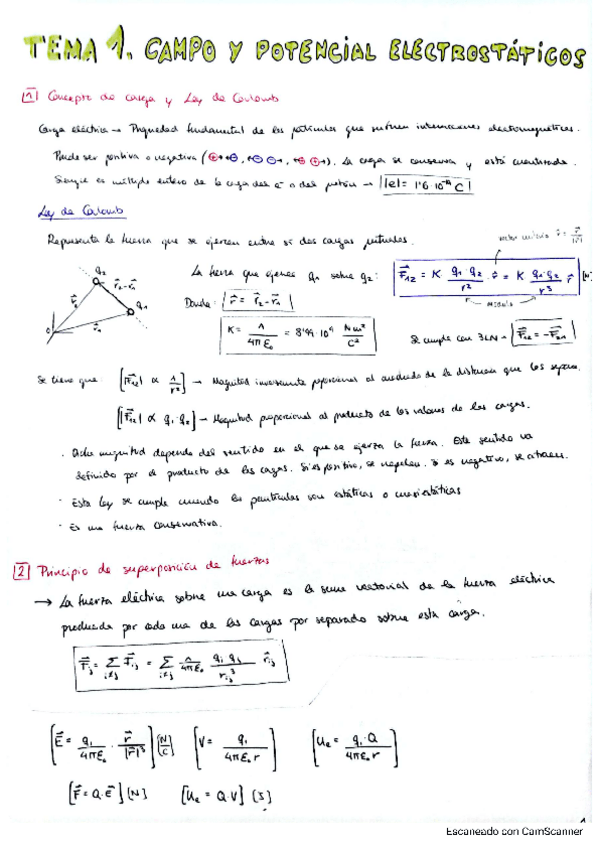 TEMA 1. CAMPO Y POTENCIAL ELECTROSTÁTICOS
1 Concepto de carga y Ley de Coulomb
Carga eléctrica → Propiedad fundamental de las partículas que sufren interacciones electromagnéticas.
Puede ser positiva o negativa (⊕→←⊖, ←⊖ ⊖→, ←⊕ ⊕→). La carga se conserva y está cuantizada.
Siempre es múltiplo entero de la carga del e⁻ o del protón → |e| = 1'6·10⁻¹⁹ C
Ley de Coulomb
Representa la fuerza que se ejercen entre sí dos cargas puntuales.
vector unitario r̂ = r⃗/|r⃗|
La fuerza que ejerce q₁ sobre q₂: F⃗₁₂ = K q₁·q₂/r² · r̂ = K q₁·q₂/r³ r⃗ [N]
q₂ r⃗₂-r⃗₁ q₁ r⃗₂ r⃗₁ O
Donde: r⃗ = r⃗₂-r⃗₁
r módulo
K = 1/4πε₀ = 8'99·10⁹ N m²/C²
Se cumple con 3LN → F⃗₁₂ = -F⃗₂₁
Se tiene que: |F⃗₁₂| ∝ 1/r² → Magnitud inversamente proporcional al cuadrado de la distancia que los separa.
|F⃗₁₂| ∝ q₁·q₂ → Magnitud proporcional al producto de los valores de las cargas.
· Dicha magnitud depende del sentido en el que se ejerza la fuerza. Este sentido va
definido por el producto de las cargas. Si es positivo, se repelen. Si es negativo, se atraen.
· Esta ley se cumple cuando las partículas son estáticas o cuasiestáticas
· Es una fuerza conservativa.
2 Principio de superposición de fuerzas
→ La fuerza eléctrica sobre una carga es la suma vectorial de la fuerza eléctrica
producida por cada una de las cargas por separado sobre esta carga.
F⃗ⱼ = Σ i≠j F⃗ᵢⱼ = Σ i≠j 1/4πε₀ qᵢ qⱼ/rᵢⱼ³ r⃗ᵢⱼ
[E⃗ = qᵢ/4πε₀ · r⃗/|r⃗|³] [N/C] [V = qᵢ/4πε₀r] [Uₑ = qᵢ·Q/4πε₀r]
[F⃗ = Q·E⃗] [N] [Uₑ = Q·V] [J]
Escaneado con CamScanner